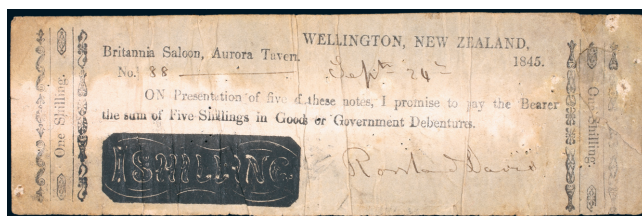 One Shilling.
WELLINGTON, NEW ZEALAND,
Britannia Saloon, Aurora Tavern.
1845.
No. 88
Septr 24
ON Presentation of five of these notes, I promise to pay the Bearer
the sum of Five Shillings in Goods or Government Debentures.
1 SHILLING
Rowland Davis
One Shilling.